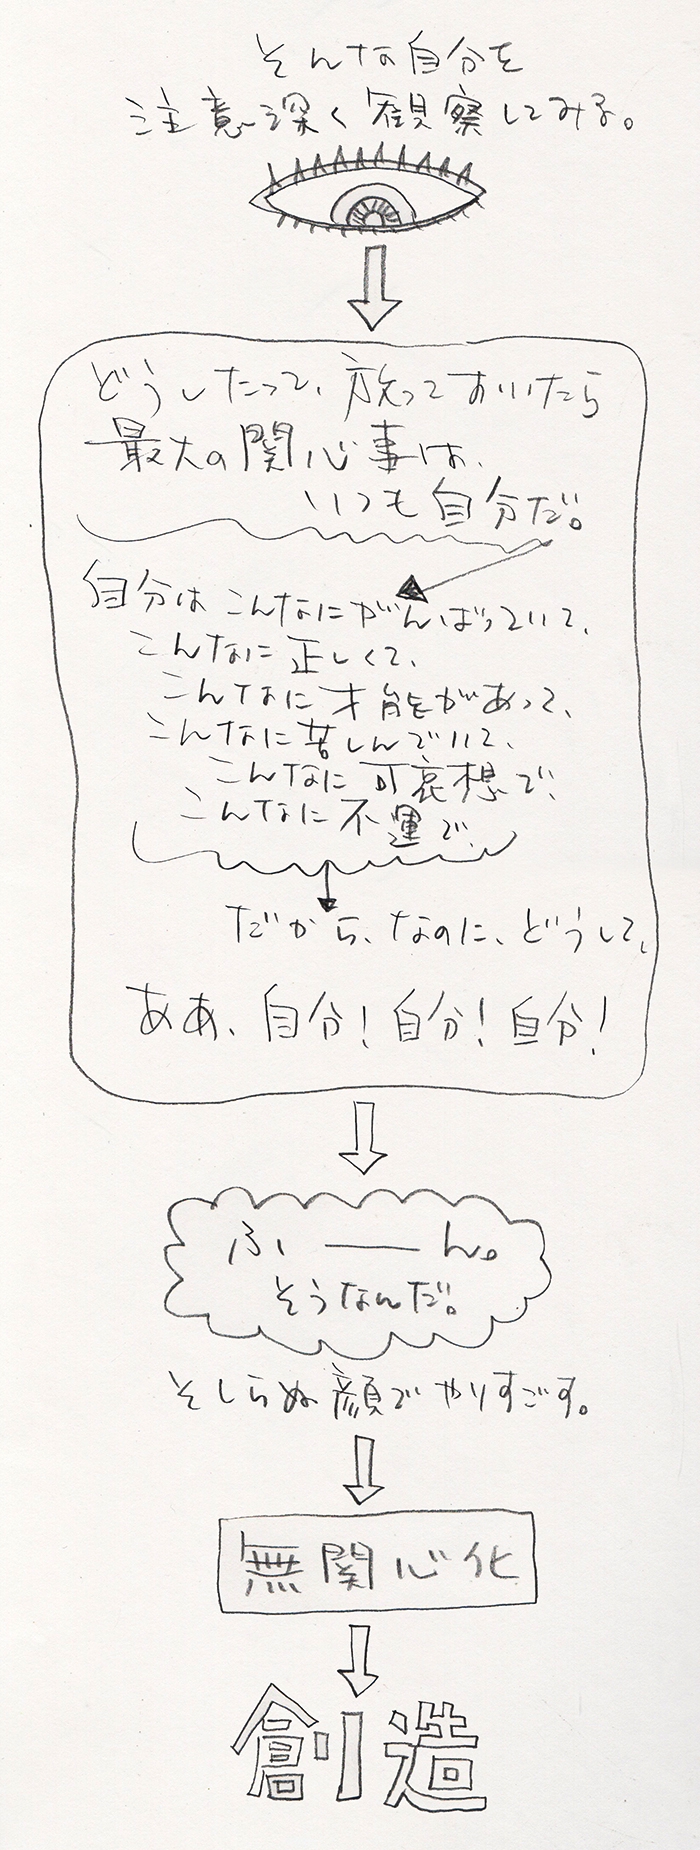 そんな自分を
注意深く観察してみる。
どうしたって、放っておいたら
最大の関心事は、
いつも自分だ。
自分はこんなにがんばっていて、
こんなに正しくて、
こんなに才能があって、
こんなに苦しんでいて、
こんなに可哀想で、
こんなに不運で、
だから、なのに、どうして、
ああ、自分！自分！自分！
ふ――ん。
そうなんだ。
そしらぬ顔でやりすごす。
無関心化
創造